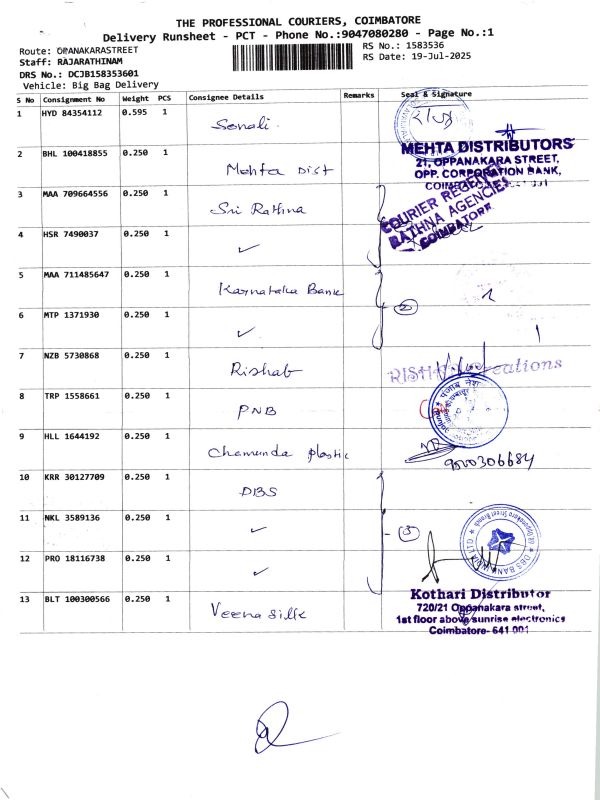 THE PROFESSIONAL COURIERS, COIMBATORE
Delivery Runsheet - PCT - Phone No.:9047080280 - Page No.:1
Route: OPANAKARASTREET
RS No.: 1583536
Staff: RAJARATHINAM
RS Date: 19-Jul-2025
DRS No.: DCJB158353601
Vehicle: Big Bag Delivery
S No Consignment No Weight PCS Consignee Details Remarks Seal & Signature
1 HYD 84354112 0.595 1 Sonali
MEHTA DISTRIBUTORS
21, OPPANAKARA STREET,
OPP. CORPORATION BANK,
2 BHL 100418855 0.250 1 Mehta Dist
3 MAA 709664556 0.250 1 Sri Rathna
COURIER RECEIVED
RATHNA AGENCIES
COIMBATORE
4 HSR 7490037 0.250 1 ✓
5 MAA 711485647 0.250 1 Karnataka Bank
2
6 MTP 1371930 0.250 1 ✓
7 NZB 5730868 0.250 1 Rishab
8 TRP 1558661 0.250 1 PNB
9 HLL 1644192 0.250 1 Chamunda plastic
9500306684
10 KRR 30127709 0.250 1 DBS
11 NKL 3589136 0.250 1 ✓
3
12 PRO 18116738 0.250 1 ✓
13 BLT 100300566 0.250 1 Veena Silk
Kothari Distributor
720/21 Oppanakara street,
1st floor above sunrise electronics
Coimbatore- 641 001